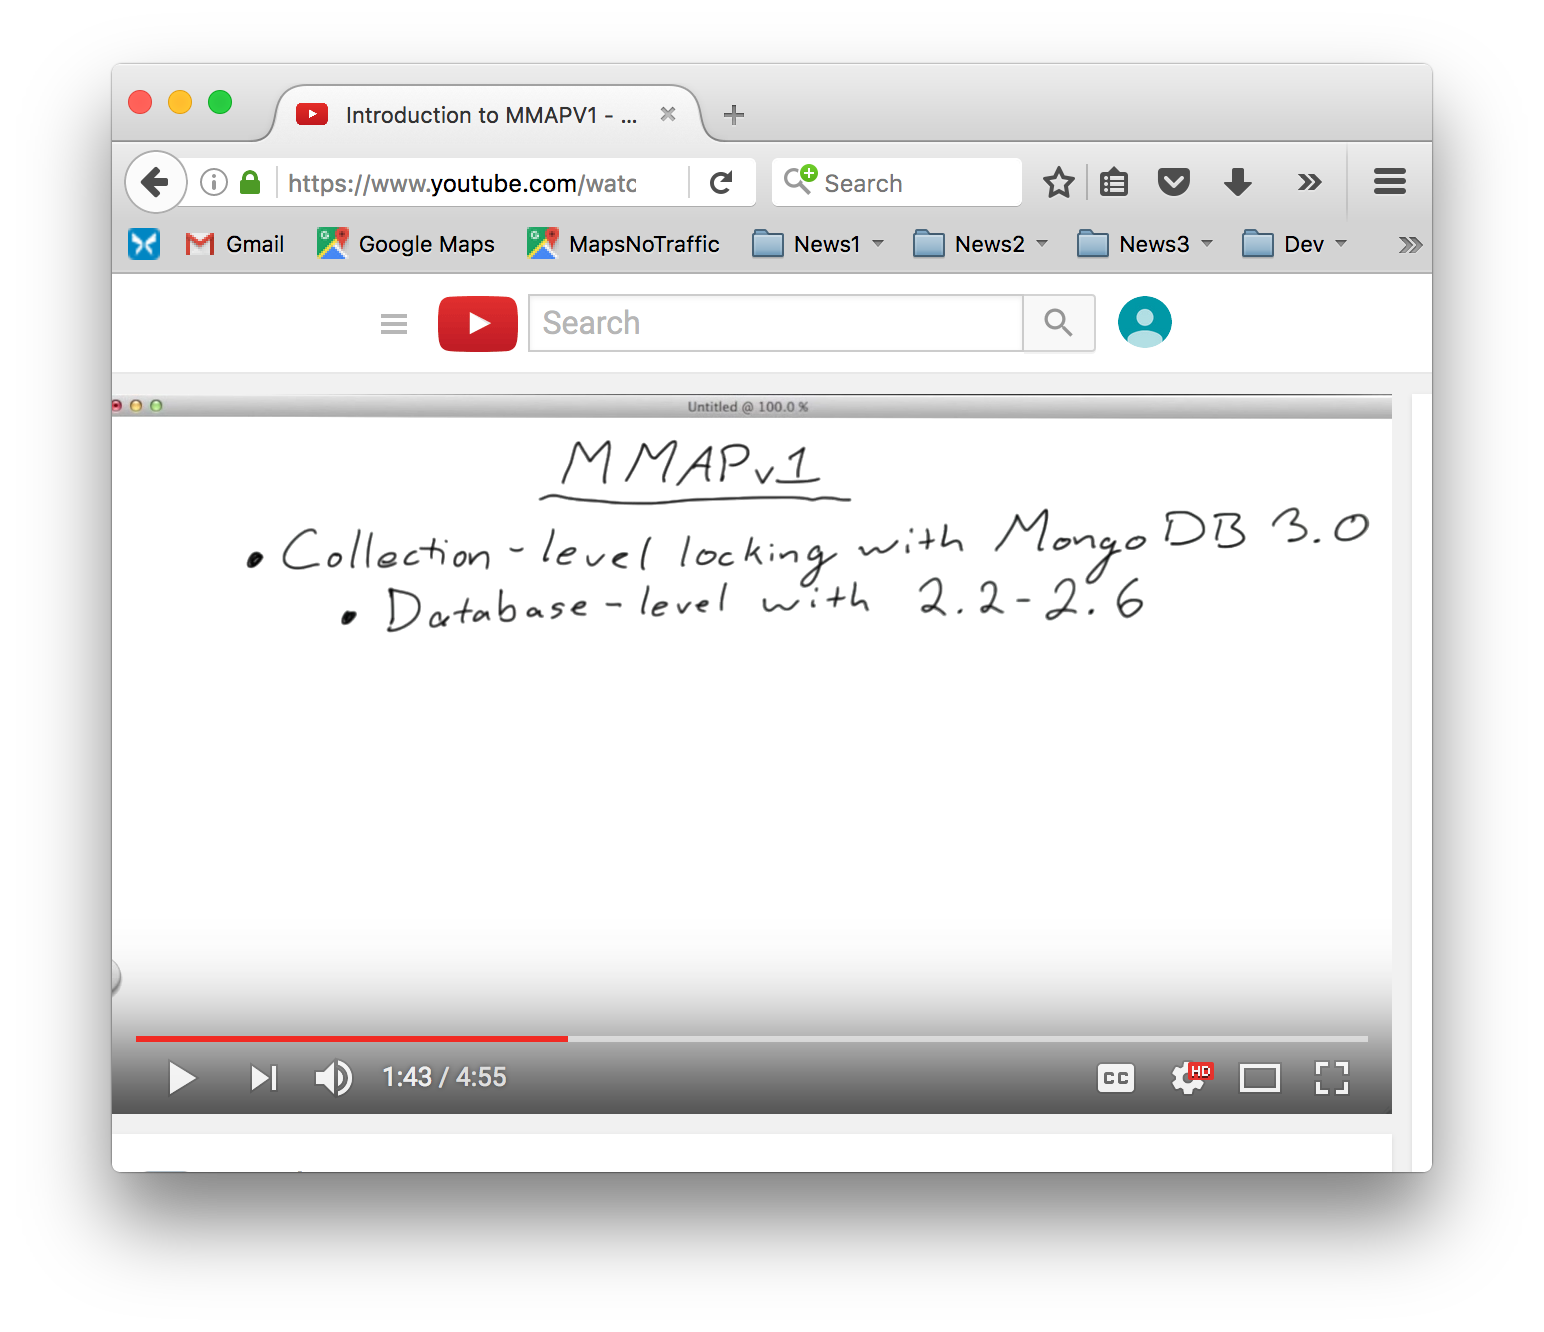 Introduction to MMAPV1 - ...
https://www.youtube.com/watc
Search
Gmail Google Maps MapsNoTraffic News1 News2 News3 Dev
Search
Untitled @ 100.0 %
MMAPv1
• Collection-level locking with MongoDB 3.0
• Database-level with 2.2-2.6
1:43 / 4:55 CC HD